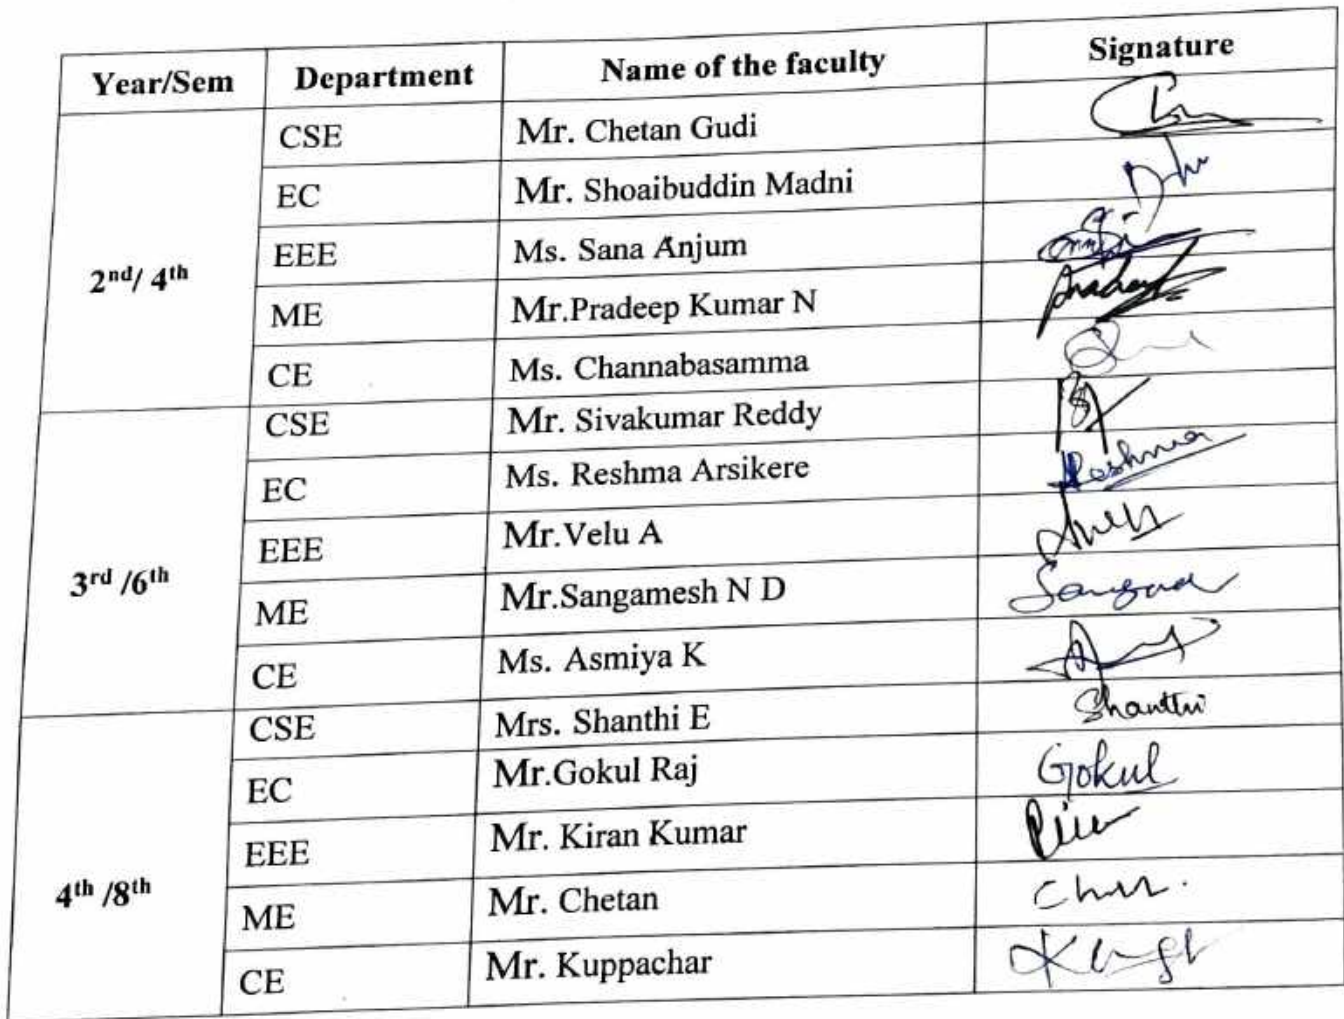 Year/Sem Department Name of the faculty Signature
CSE Mr. Chetan Gudi
EC Mr. Shoaibuddin Madni
2nd/ 4th EEE Ms. Sana Anjum
ME Mr.Pradeep Kumar N
CE Ms. Channabasamma
CSE Mr. Sivakumar Reddy
EC Ms. Reshma Arsikere Reshma
EEE Mr.Velu A
3rd /6th ME Mr.Sangamesh N D
CE Ms. Asmiya K
CSE Mrs. Shanthi E Shanthi
EC Mr.Gokul Raj Gokul
EEE Mr. Kiran Kumar
4th /8th ME Mr. Chetan
CE Mr. Kuppachar